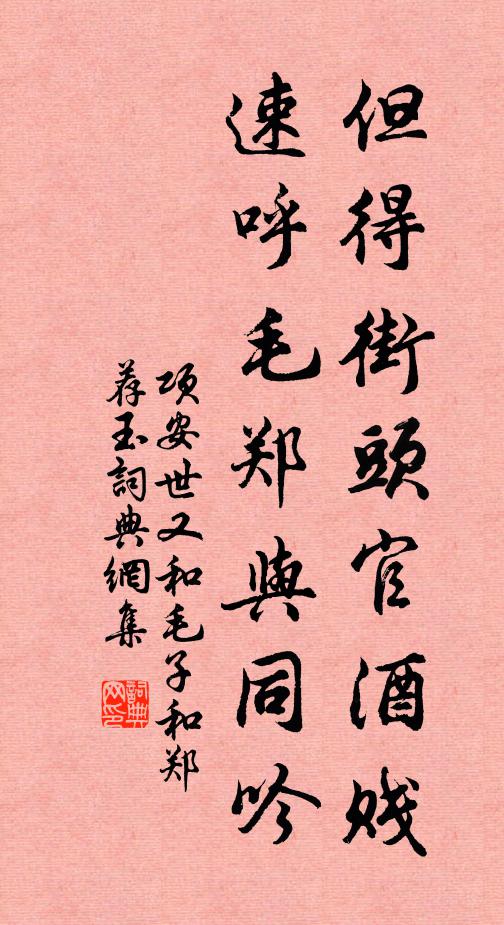 但得街頭官酒贱
速呼毛郑與同吟
项安世又和毛子和郑
荐玉詞典網集
詞典网印